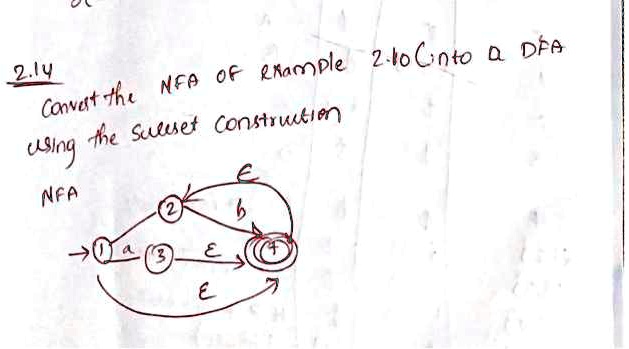 2.14
Convert the NFA OF Example 2.10 into a DFA
using the Subset Construction
NFA
ε
2
b
1 a 3 ε 4
ε